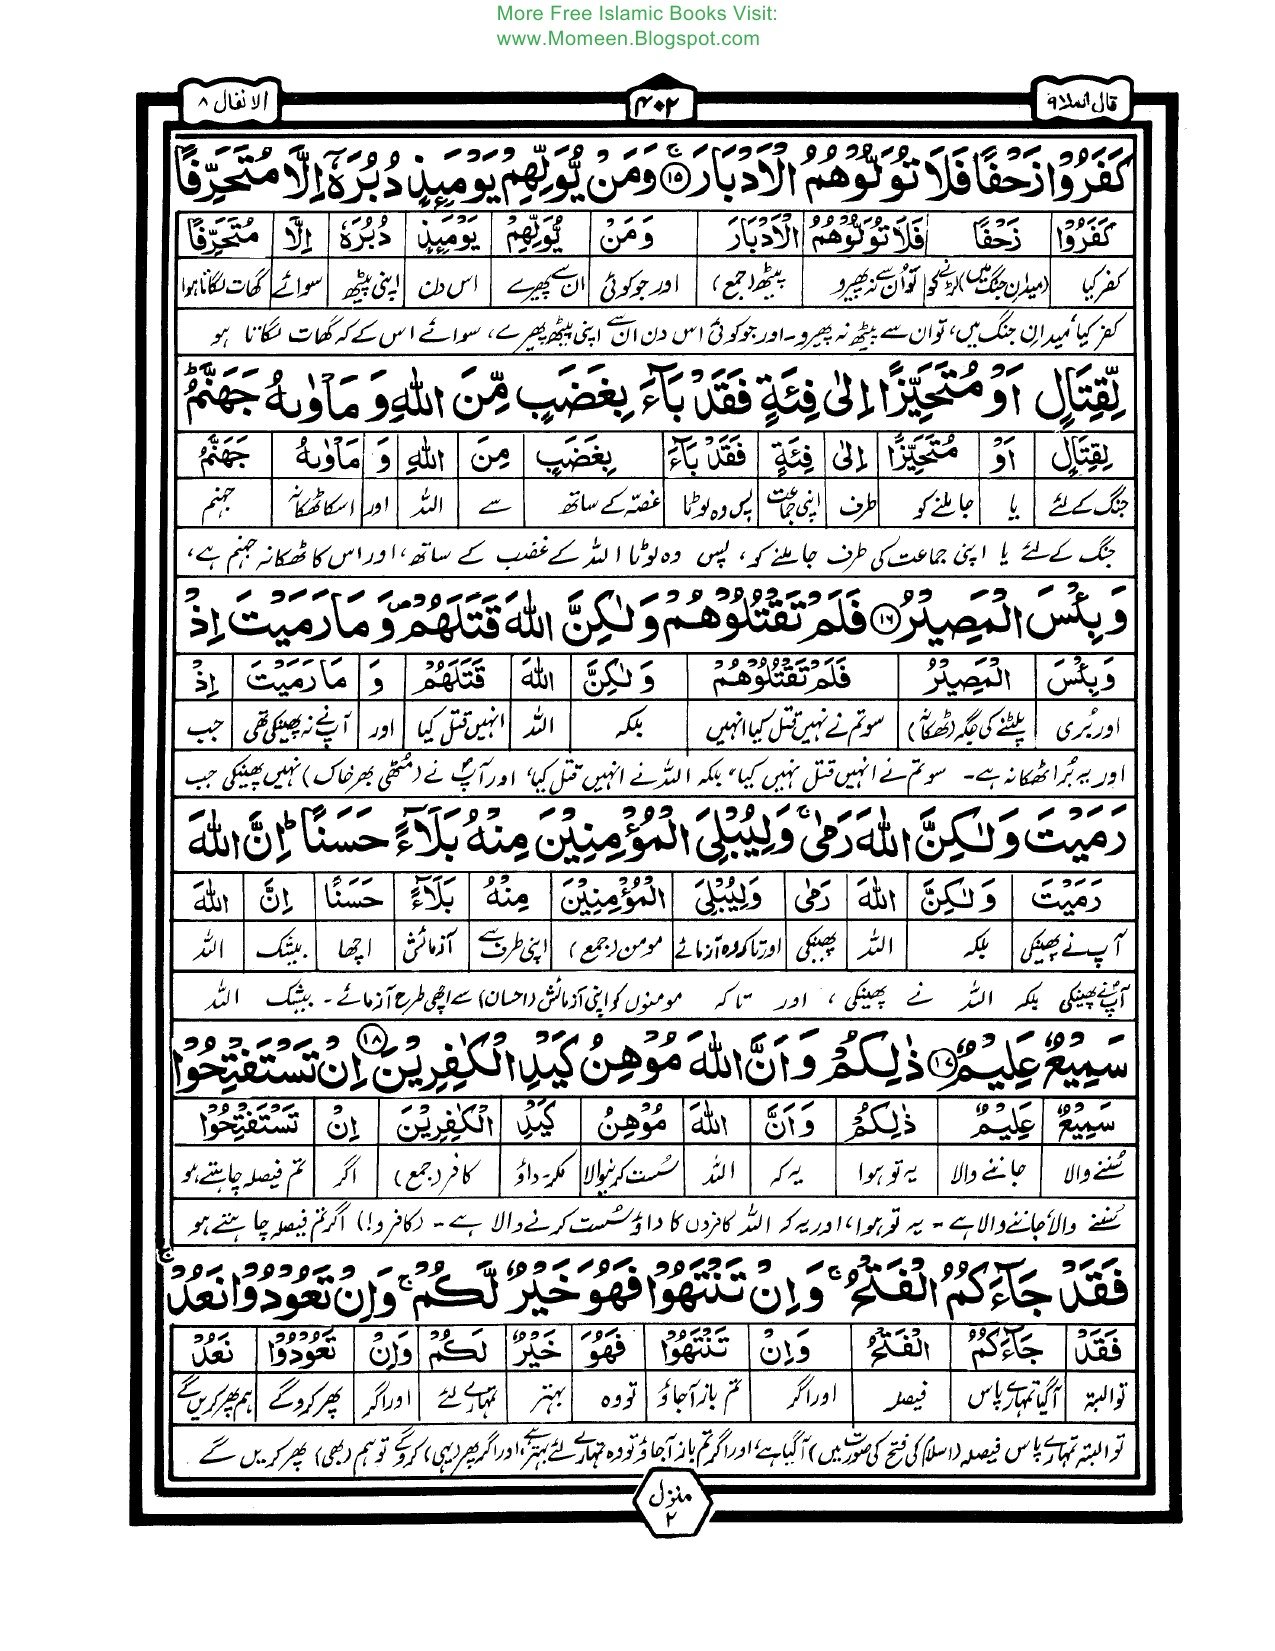 More Free Islamic Books Visit:
www.Momeen.Blogspot.com
قال الملا ٩
۴۰۲
الانفال ٨
كَفَرُوْا زَحْفًا فَلَا تُوَلُّوْهُمُ الْاَدْبَارَ ۚ ١٥ وَمَنْ يُّوَلِّهِمْ يَوْمَئِذٍ دُبُرَهٗٓ اِلَّا مُتَحَرِّفًا
كَفَرُوْا زَحْفًا فَلَا تُوَلُّوْهُمُ الْاَدْبَارَ وَمَنْ يُّوَلِّهِمْ يَوْمَئِذٍ دُبُرَهٗٓ اِلَّا مُتَحَرِّفًا
کفر کیا (میدان جنگ میں) لڑنے کو تو اُن سے نہ پھیرو پیٹھ (جمع) اور جو کوئی ان سے پھیرے اس دن اپنی پیٹھ سوائے گھات لگاتا ہوا
کفر کیا، میدانِ جنگ میں، تو ان سے پیٹھ نہ پھیرو۔ اور جو کوئی اس دن اُن سے اپنی پیٹھ پھیرے، سوائے اس کے کہ گھات لگاتا ہو
لِّقِتَالٍ اَوْ مُتَحَيِّزًا اِلٰى فِئَةٍ فَقَدْ بَآءَ بِغَضَبٍ مِّنَ اللّٰهِ وَ مَاْوٰىهُ جَهَنَّمُ ؕ
لِقِتَالٍ اَوْ مُتَحَيِّزًا اِلٰى فِئَةٍ فَقَدْ بَآءَ بِغَضَبٍ مِنَ اللّٰهِ وَ مَاْوٰىهُ جَهَنَّمُ
جنگ کے لئے یا جا ملنے کو طرف اپنی جماعت پس وہ لوٹا غصّہ کے ساتھ سے اللہ اور اسکا ٹھکانہ جہنم
جنگ کے لئے یا اپنی جماعت کی طرف جا ملنے کو، پس وہ لوٹا اللہ کے غضب کے ساتھ، اور اس کا ٹھکانہ جہنم ہے،
وَ بِئْسَ الْمَصِيْرُ ١٦ فَلَمْ تَقْتُلُوْهُمْ وَلٰكِنَّ اللّٰهَ قَتَلَهُمْ ۪ وَمَا رَمَيْتَ اِذْ
وَ بِئْسَ الْمَصِيْرُ فَلَمْ تَقْتُلُوْهُمْ وَلٰكِنَّ اللّٰهَ قَتَلَهُمْ وَ مَا رَمَيْتَ اِذْ
اور بُری پلٹنے کی جگہ (ٹھکانا) سو تم نے نہیں قتل کیا انہیں بلکہ اللہ انہیں قتل کیا اور آپ نے نہ پھینکی تھی جب
اور یہ بُرا ٹھکانہ ہے۔ سو تم نے انہیں قتل نہیں کیا، بلکہ اللہ نے انہیں قتل کیا، اور آپؐ نے (مُٹھی بھر خاک) نہیں پھینکی جب
رَمَيْتَ وَلٰكِنَّ اللّٰهَ رَمٰى ۚ وَلِيُبْلِىَ الْمُؤْمِنِيْنَ مِنْهُ بَلَآءً حَسَنًا ؕ اِنَّ اللّٰهَ
رَمَيْتَ وَلٰكِنَّ اللّٰهَ رَمٰى وَلِيُبْلِىَ الْمُؤْمِنِيْنَ مِنْهُ بَلَآءً حَسَنًا اِنَّ اللّٰهَ
آپ نے پھینکی بلکہ اللہ پھینکی اور تاکہ وہ آزمائے مومن (جمع) اپنی طرف سے آزمائش اچھا بیشک اللہ
آپؐ نے پھینکی بلکہ اللہ نے پھینکی، اور تاکہ مومنوں کو اپنی آزمائش (احسان) سے اچھی طرح آزمائے۔ بیشک اللہ
سَمِيْعٌ عَلِيْمٌ ١٧ ذٰلِكُمْ وَ اَنَّ اللّٰهَ مُوْهِنُ كَيْدِ الْكٰفِرِيْنَ ١٨ اِنْ تَسْتَفْتِحُوْا
سَمِيْعٌ عَلِيْمٌ ذٰلِكُمْ وَاَنَّ اللّٰهَ مُوْهِنُ كَيْدِ الْكٰفِرِيْنَ اِنْ تَسْتَفْتِحُوْا
سُننے والا جاننے والا یہ تو ہوا یہ کہ اللہ سُست کرنیوالا مکر، داؤ کافر (جمع) اگر تم فیصلہ چاہتے ہو
سُننے والا، جاننے والا ہے۔ یہ تو ہوا، اور یہ کہ اللہ کافروں کا داؤ سُست کرنے والا ہے۔ (کافرو!) اگر تم فیصلہ چاہتے ہو
فَقَدْ جَآءَكُمُ الْفَتْحُ ۚ وَاِنْ تَنْتَهُوْا فَهُوَ خَيْرٌ لَّكُمْ ۚ وَاِنْ تَعُوْدُوْا نَعُدْ
فَقَدْ جَآءَكُمُ الْفَتْحُ وَاِنْ تَنْتَهُوْا فَهُوَ خَيْرٌ لَكُمْ وَاِنْ تَعُوْدُوْا نَعُدْ
تو البتہ آگیا تمہارے پاس فیصلہ اور اگر تم باز آجاؤ تو وہ بہتر تمہارے لئے اور اگر پھر کروگے ہم پھر کریں گے
تو البتہ تمہارے پاس فیصلہ (اسلام کی فتح کی صورت میں) آگیا ہے، اور اگر تم باز آجاؤ تو وہ تمہارے لئے بہتر ہے، اور اگر پھر (یہی) کروگے تو ہم (بھی) پھر کریں گے
منزل
۲